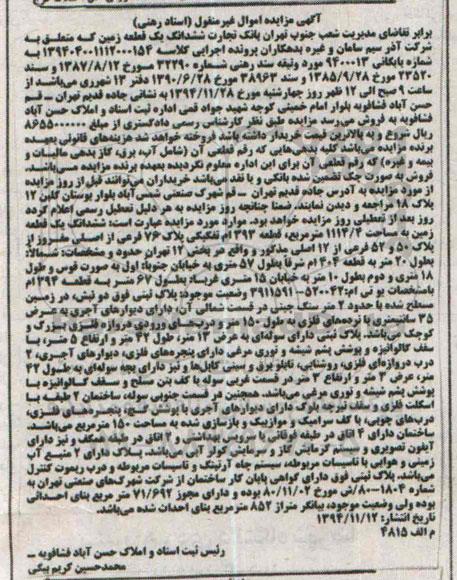 آگهی مزایده اموال غیرمنقول (اسناد رهنی)
برابر تقاضای مدیریت شعب جنوب تهران بانک تجارت ششدانگ یک قطعه زمین که متعلق به
شرکت آذر سیم سامان و غیره بدهکاران پرونده اجرایی کلاسه ۱۳۹۴۰۴۰۰۱۱۱۲۰۰۰۱۵۴ به
شماره بایگانی ۹۴۰۰۰۱۳ مورد وثیقه سند رهنی شماره ۳۲۲۹۰ مورخ ۱۳۸۷/۸/۱۲ و سند
۲۳۵۲۰ مورخ ۱۳۸۵/۹/۲۸ و سند ۳۸۹۶۳ مورخ ۱۳۹۰/۶/۲۸ دفتر ۱۳ شهرری می‌باشد از
ساعت ۹ صبح الی ۱۲ ظهر روز چهارشنبه مورخ ۱۳۹۴/۱۱/۲۸ به نشانی جاده قدیم تهران ــ قم
حسن آباد فشافویه بلوار امام خمینی کوچه شهید جواد قصی اداره ثبت اسناد و املاک حسن آباد
فشافویه به فروش می‌رسد مزایده طبق نظر کارشناس رسمی دادگستری از مبلغ ۸٬۶۵۵٬۰۰۰٬۰۰۰
ریال شروع و به بالاترین قیمت خریدار داشته باشد فروخته خواهد شد هزینه‌های قانونی بعهده
برنده مزایده می‌باشد کلیه بدهی‌هایی که رقم قطعی آن (شامل آب، برق، گاز بدهی مالیات و
بیمه و غیره) که رقم قطعی آن برای این اداره معلوم نگردیده بعهده برنده مزایده می‌باشد.
فروش به صورت چک تضمین شده بانکی و یا نقد می‌باشد خریداران می‌توانند قبل از روز مزایده
از مورد مزایده به آدرس جاده قدیم تهران ــ قم شهرک صنعتی شمس آباد بلوار بوستان گلبن ۱۲
پلاک ۱۸ مراجعه و دیدن نمایند. ضمنا چنانچه روز مزایده به هر دلیل تعطیل رسمی اعلام گردد
روز بعد از تعطیلی روز مزایده خواهد بود. موارد مورد مزایده عبارت است: ششدانگ یک قطعه
زمین به مساحت ۱۱۱۴/۴ مترمربع، قطعه ۳۹۳ ام تفکیکی پلاک ۷۶ فرعی از اصلی مفروز از
پلاک ۵۰ و ۵۲ فرعی از ۱۲ اصلی مذکور و واقع در بخش ۱۲ تهران حدود و مشخصات: شمالاً:
بطول ۲۰ متر به قطعه ۴۰۴ ام شرقاً بطول ۵۷ متری به خیابان جنوباً: اول به صورت قوس و طول
۱۸ متری و دوم بطول ۱۰ متر به خیابان ۱۵ متری غرباً: بطول ۶۷ متر به قطعه ۳۹۴ ام
وضعیت موجود: پلاک ثبتی فوق دو نبش، در زمین
مسطح شده با حدود ۲ متر سنگ چینی در قسمت شمالی آن، دارای دیوارهای آجری به عرض
۳۵ سانتیمتری با نرده‌های فلزی به طول ۱۵۰ متر و درب‌های ورودی دروازه فلزی بزرگ و
کوچک می‌باشد. پلاک ثبتی دارای سوله‌ای به عرض ۱۳ متر، طول ۴۲ متر و ارتفاع ۵ متر، با
سقف گالوانیزه و پوشش پشم شیشه و نوری مرغی دارای پنجره‌های فلزی، دیوارهای آجری، ۲
درب دروازه‌ای فلزی، روشنایی، تابلو برق و سینی کابل‌ها و نیز دارای بچه سوله‌ای به طول ۴۲
متر، عرض ۳ متر و ارتفاع ۳ متر در قسمت غربی سوله با کف بتن مسلح و سقف گالوانیزه با
پوشش پشم شیشه و توری مرغی می‌باشد. همچنین در قسمت جنوبی سوله، ساختمان ۲ طبقه با
اسکلت فلزی و سقف تیرچه بلوک دارای دیوارهای آجری با پوشش گچ، پنجره‌های فلزی،
درب‌های چوبی، با کف سرامیک و موازییک و بازسازی شده به مساحت ۱۵۰ مترمربع می‌باشد.
ساختمان دارای ۴ اتاق در طبقه فوقانی با سرویس بهداشتی و ۲ اتاق در طبقه همکف و نیز دارای
آیفون تصویری و سیستم گرمایش گاز و سرمایش کولر آبی می‌باشد. پلاک دارای ۲ منبع آب
زمینی و هوایی با تاسیسات مربوطه، سیستم چاه ارتینگ و تاسیسات مربوطه و درب ریموت کنترل
می‌باشد. پلاک ثبتی فوق دارای گواهی پایان کار ساختمان از شرکت شهرک‌های صنعتی تهران به
شماره ۱۸۰۴-۸۰/ش مورخ ۸۰/۱۱/۰۲ بوده و دارای مجوز ۷۱/۶۹۲ متر مربع بنای احداثی
بوده ولی وضعیت موجود، بیانگر متراژ ۸۵۲ مترمربع بنای احداث شده می‌باشد.
تاریخ انتشار: ۱۳۹۴/۱۱/۱۲
م الف ۴۸۱۵
رئیس ثبت اسناد و املاک حسن آباد فشافویه ــ
محمدحسین کریم بیگی